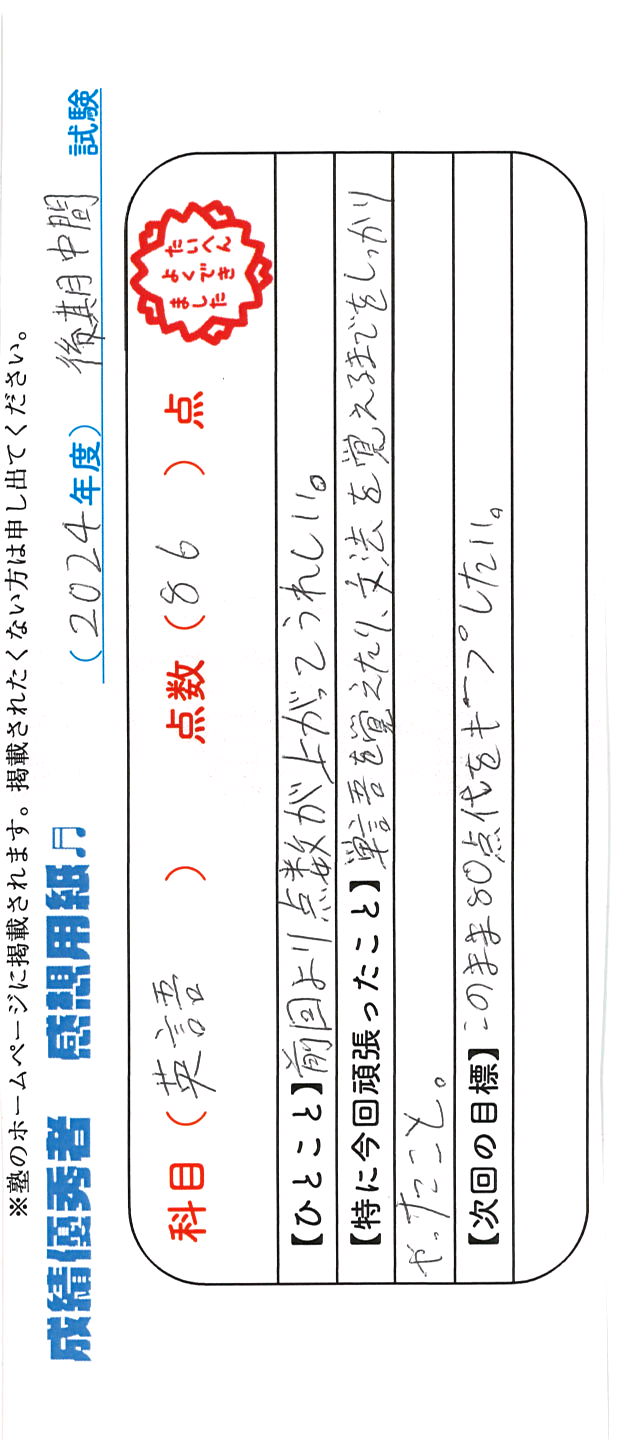 ※塾のホームページに掲載されます。掲載されたくない方は申し出てください。
成績優秀者 感想用紙♬ (2024年度) 後期中間 試験
科目(英語) 点数(86)点
たいへん
よくでき
ました
【ひとこと】前回より点数が上がってうれしい。
【特に今回頑張ったこと】単語を覚えたり、文法を覚えるまでをしっかり
やったこと。
【次回の目標】このまま80点代をキープしたい。